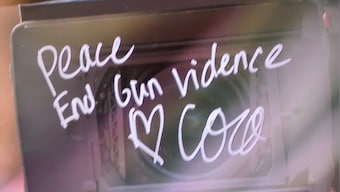 Peace
End Gun Vidence
♡ Coco